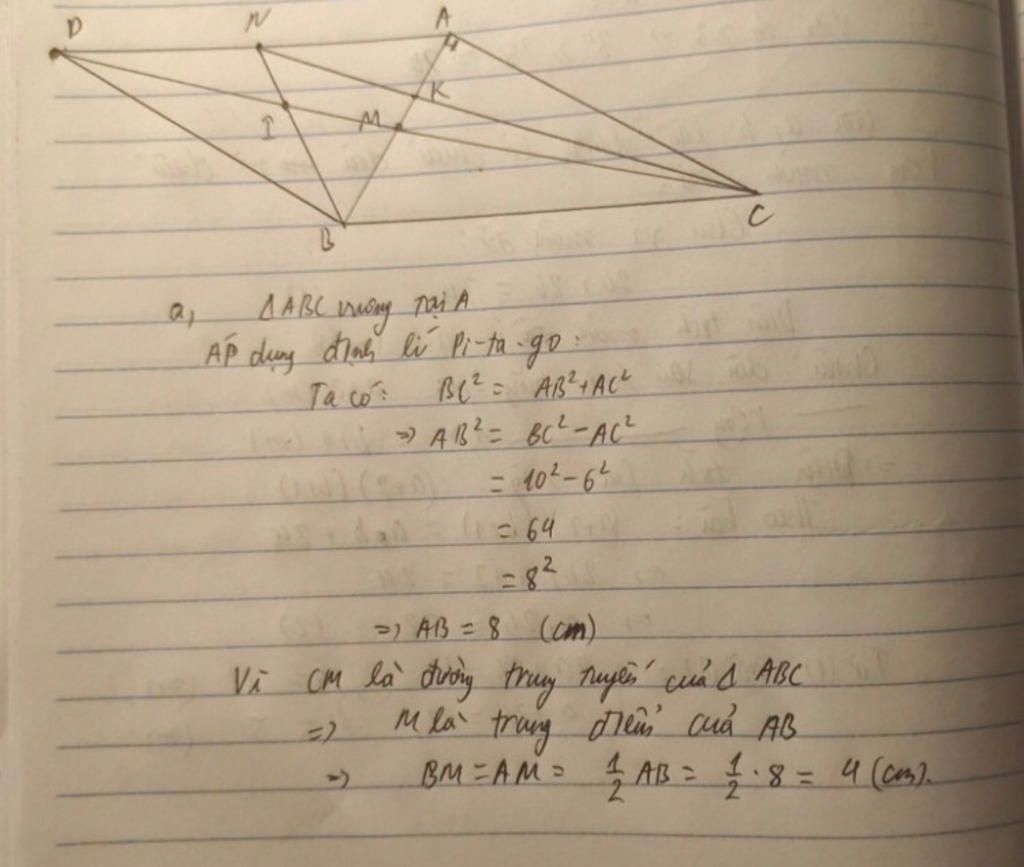 D N A
K
I M
B C
a, ΔABC vuông tại A
Áp dụng định lí Pi-ta-go:
Ta có: BC² = AB² + AC²
=> AB² = BC² - AC²
= 10² - 6²
= 64
= 8²
=> AB = 8 (cm)
Vì CM là đường trung tuyến của Δ ABC
=> M là trung điểm của AB
=> BM = AM = 1/2 AB = 1/2 · 8 = 4 (cm).